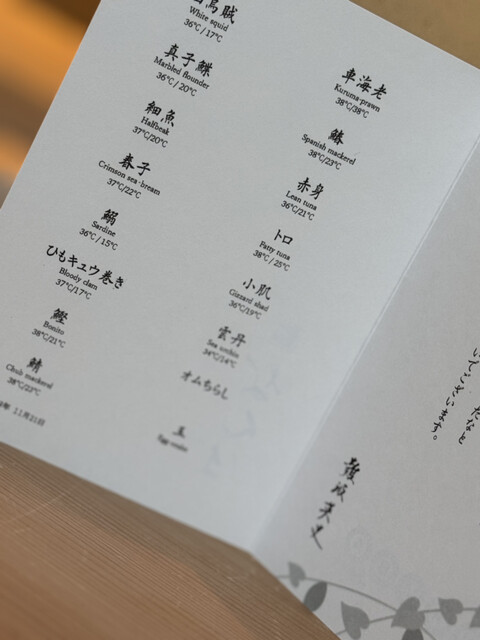 烏賊
White squid
36℃/17℃
真子鰈
Marbled flounder
36℃/20℃
細魚
Halfbeak
37℃/20℃
春子
Crimson sea-bream
37℃/22℃
鰯
Sardine
36℃/15℃
ひもキュウ巻き
Bloody clam
37℃/17℃
鰹
Bonito
38℃/21℃
鯖
Chub mackerel
38℃/23℃
年 11月21日
車海老
Kuruma-prawn
38℃/38℃
鰆
Spanish mackerel
38℃/23℃
赤身
Lean tuna
36℃/21℃
トロ
Fatty tuna
38℃/25℃
小肌
Gizzard shad
36℃/19℃
雲丹
Sea urchin
34℃/14℃
オムちらし
玉
Egg
たなと
いでございます。